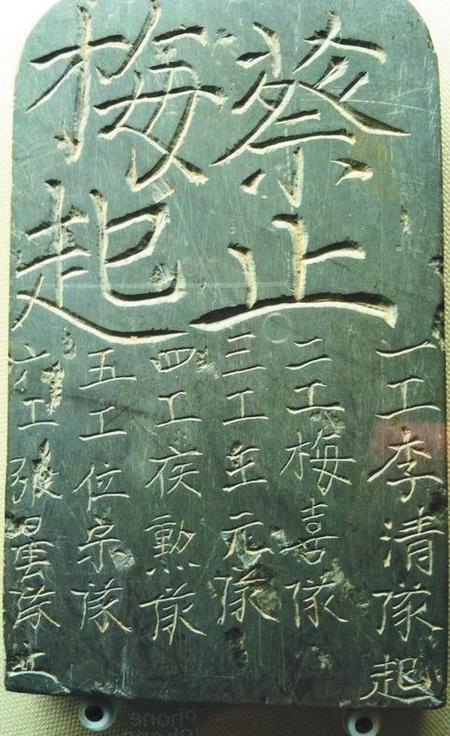 蔡止
梅起
一工李清隊起
二工梅喜隊
三工年元隊
四工侯勲隊
五工位宗隊
六工張量隊止